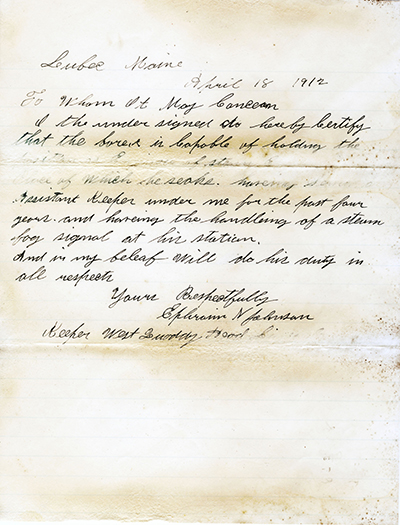 Lubec Maine
April 18 1912
To Whom It May Concern
I the under signed do hereby Certify
that the barer is Capable of holding the
of which he seeks. having
Assistant Keeper under me for the past four
years. and haveing the handleing of a steam
fog signal at his station.
And in my beleaf Will do his duty in
all respects
Yours Respectfully
Ephraim N Johnson
Keeper West Quoddy Head